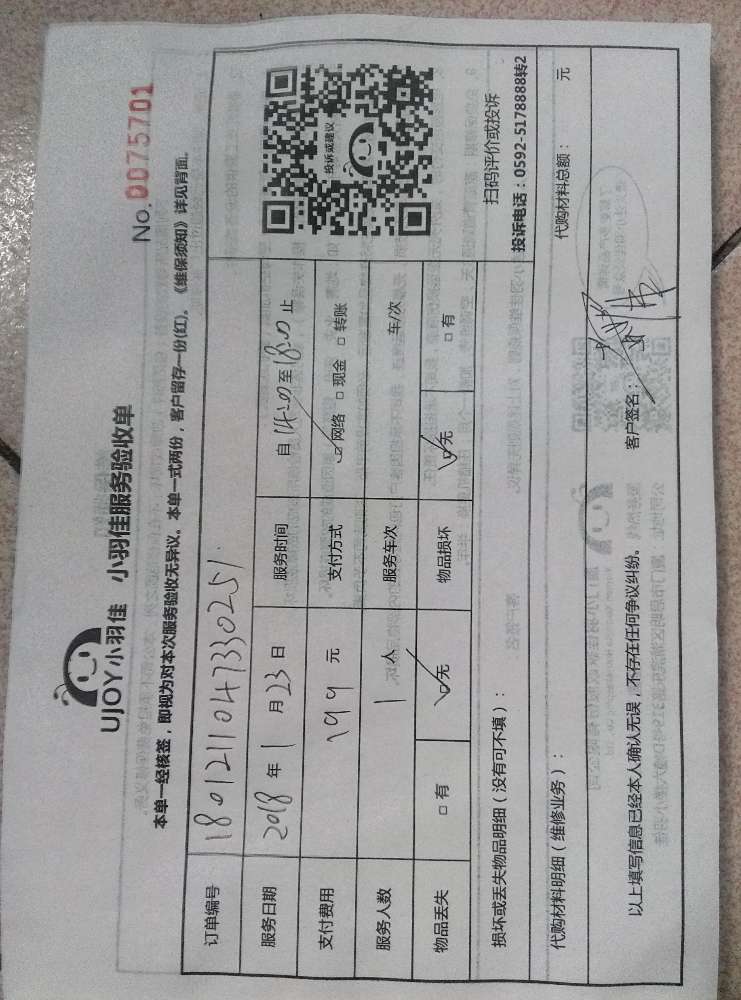 UJOY小羽佳 小羽佳服务验收单
No.0075701
本单一经核签，即视为对本次服务验收无异议。本单一式两份，客户留存一份(红)。《维保须知》详见背面。
订单编号 180121104733025
服务日期 2018年1月23日 服务时间 自14:00至18:00止
支付费用 199元 支付方式 □网络 □现金 □转账
服务人数 1人 服务车次 车/次
物品丢失 □有 □无 物品损坏 □无 □有
投诉或建议
扫码评价或投诉
投诉电话：0592-5178888转2
损坏或丢失物品明细（没有可不填）：
代购材料明细（维修业务）： 代购材料总额： 元
以上填写信息已经本人确认无误，不存在任何争议纠纷。 客户签名：